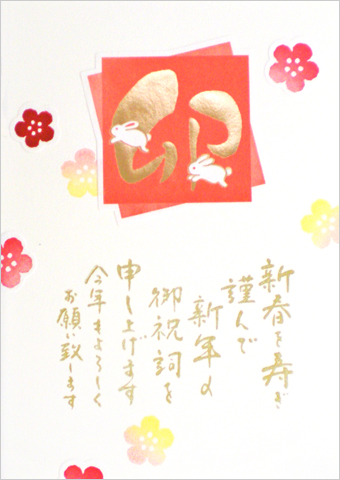 卯
新春を寿ぎ
謹んで
新年の
御祝詞を
申し上げます
今年もよろしく
お願い致します